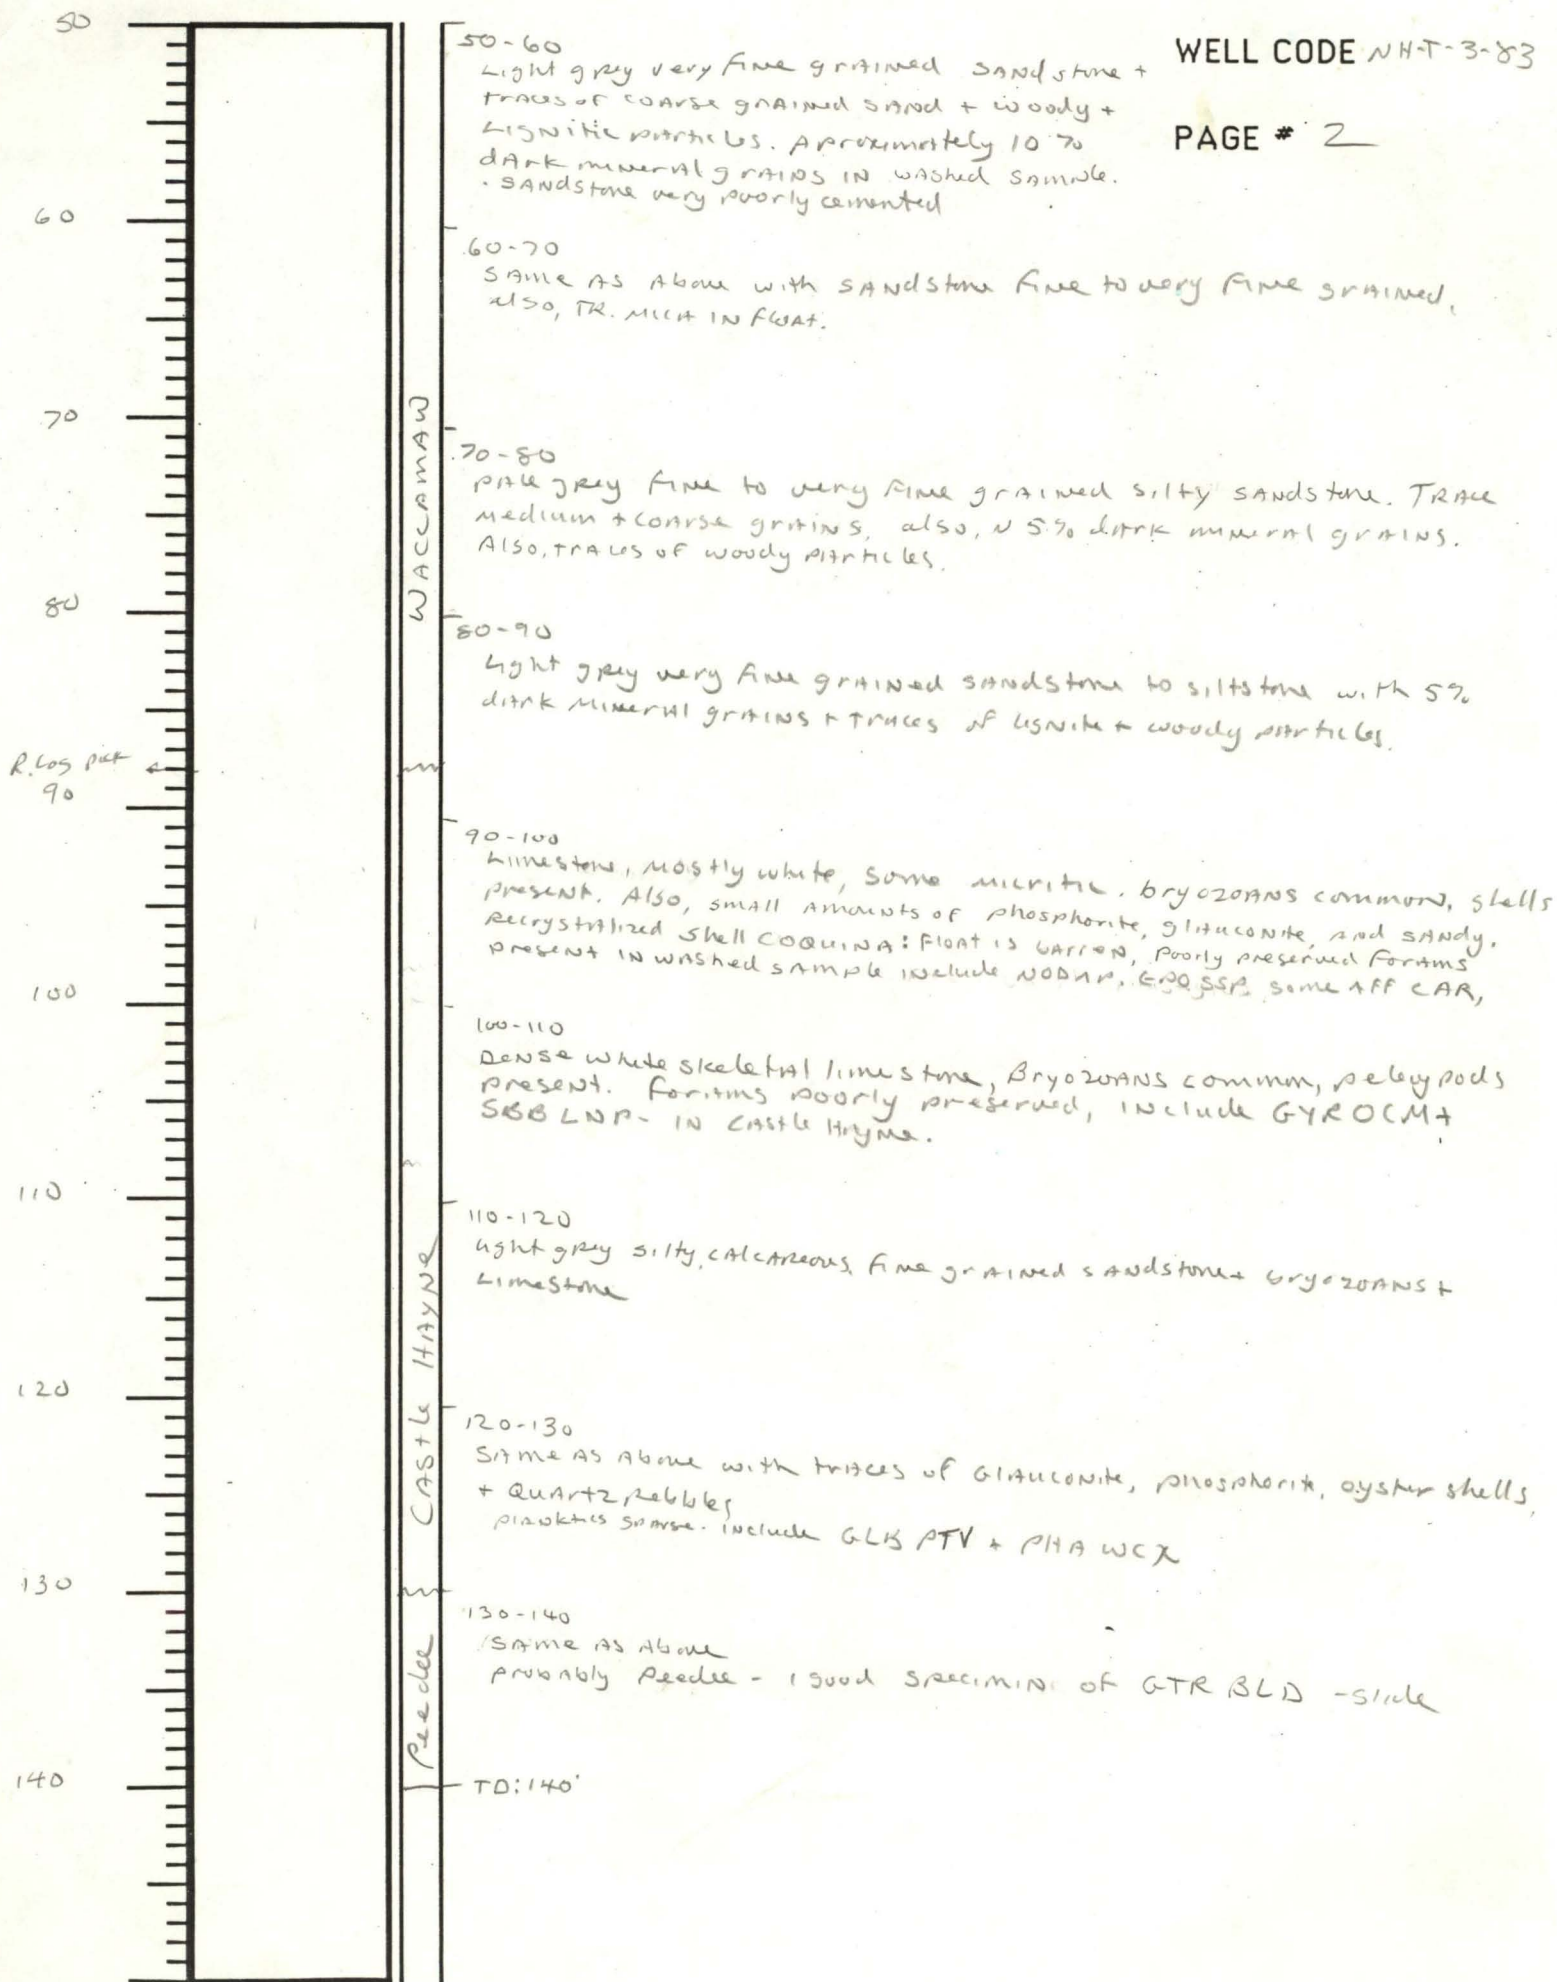 WELL CODE NH-T-3-83
PAGE # 2
50
60
70
80
R. Log pick
90
100
110
120
130
140
WACCAMAW
Castle HAYNE
Peedee
50-60
Light grey very fine grained sandstone +
traces of coarse grained sand + woody +
Lignitic particles. Aproximately 10%
dark mineral grains in washed sample.
. Sandstone very poorly cemented
60-70
Same as above with sandstone fine to very fine grained,
also, TR. mica in float.
70-80
pale grey fine to very fine grained silty sandstone. Trace
medium + coarse grains, also, ~ 5% dark mineral grains.
Also, traces of woody particles.
80-90
Light grey very fine grained sandstone to siltstone with 5%
dark mineral grains + traces of lignite + woody particles.
90-100
Limestone, mostly white, some micritic. bryozoans common, shells
present. Also, small amounts of phosphorite, glauconite, and sandy,
recrystalized shell COQUINA: Float is barren, Poorly preserved forams
present in washed sample include NODAP. SSP some AFF CAR,
100-110
Dense white skeletal limestone, Bryozoans common, pelecypods
present. Forams poorly preserved, include GYROCM +
SBBLNP - in Castle Hayne.
110-120
Light grey silty, calcareous, fine grained sandstone + bryozoans +
Limestone
120-130
Same as above with traces of Glauconite, phosphorite, oyster shells,
+ Quartz Pebbles,
planktics sparse. include GLB PTV + PHA WCX
130-140
Same as above
probably Peedee - 1 good specimin of GTR BLD - slide
TD: 140'